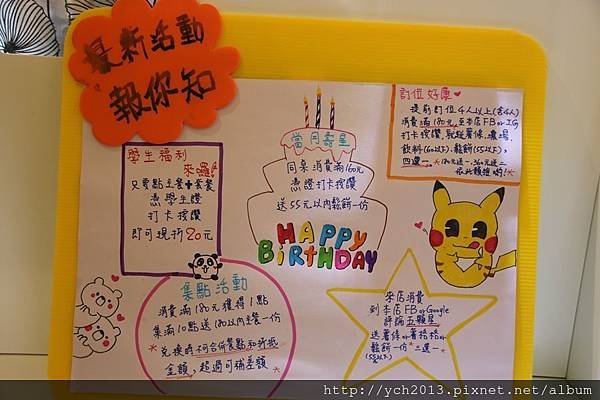 最新活動
報你知
學生福利
來囉!
只要點主餐+套餐
憑學生證
打卡按讚
即可現折20元
當月壽星
同桌消費滿160元
憑證打卡按讚
送55元以內鬆餅一份
HAPPY
BiRTHDAY
訂位好康
提前訂位4人以上(含4人)
消費滿180元,至本店FB or IG
打卡按讚,就送薯條、濃湯、
飲料(60以下)、鬆餅(55以下),
四選一。*180元送一、360元送二
依此類推喲!*
集點活動
消費滿180元獲得1點
集滿10點送180以內主餐一份
*兌換時不合併餐點和折抵
金額,超過可補差額*
來店消費
到本店FB or Google
評論五顆星
送薯條or薯格格or
鬆餅一份*三選一*
(55元以下)
http://ych2013.pixnet.net/album